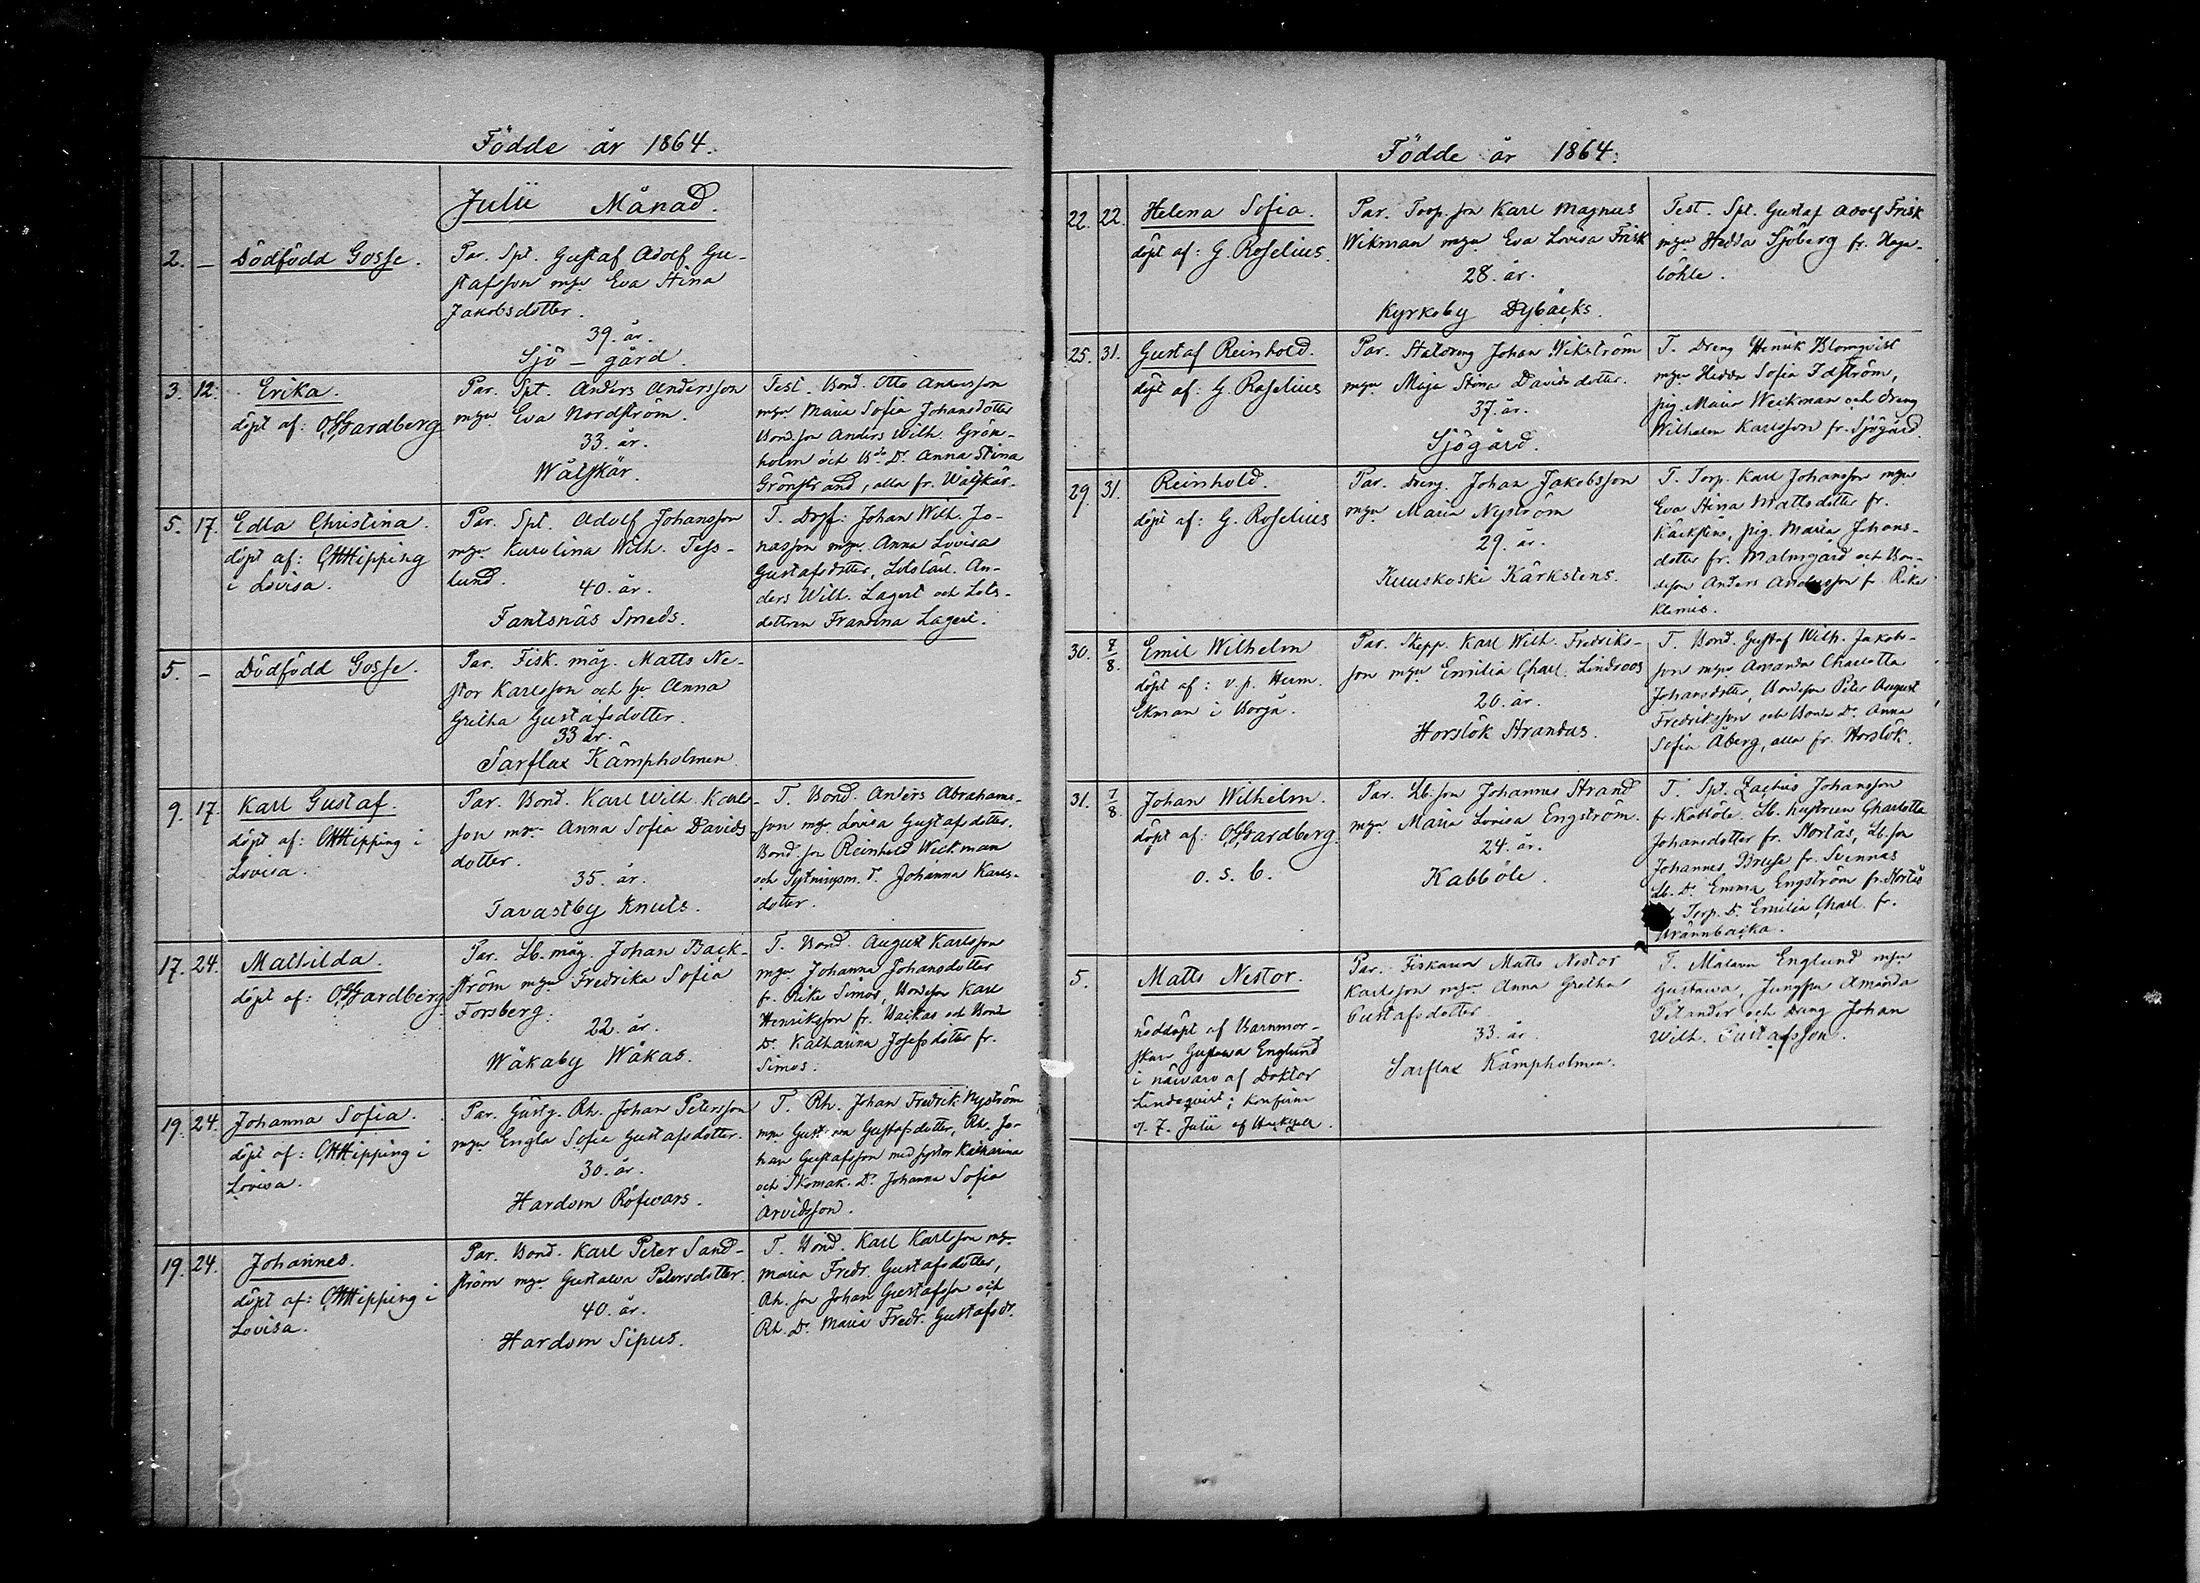 Födde år 1864.
Julii Månad.
2. – Dödfödd Gosse.
Par. Spt. Gustaf Adolf Gu-
stafsson m hu Eva Stina
Jakobsdotter.
39. år.
Sjö – gård.
3. 12. Erika.
döpt af: O. Gardberg
Par. Spt. Anders Andersson
m hu Eva Nordström.
33. år.
Wåtskär.
Test. Bond. Otto Andersson
m hu Maria Sofia Johansdotter
Bond. son Anders Wilh. Grön-
holm och Bde Dr. Anna Stina
Grönstrand, alla fr. Wåtskär.
5. 17. Edla Christina.
döpt af: Hipping
i Lovisa.
Par. Spt. Adolf Johansson
m hu Karolina Wilh. Tess-
lund.
40. år.
Fantsnäs Smeds.
T. Johan Wilh. Jo-
nasson m hu Anna Lovisa
Gustafsdotter, An-
ders Wilh. Lagert och Lots-
dottren Fransina Lagert.
5. – Dödfödd Gosse.
Par. Fisk. måg. Matts Ne-
stor Karlsson och hu Anna
Gretha Gustafsdotter.
33 år.
Sarflax Kämpholmen.
9. 17. Karl Gustaf.
döpt af: Hipping i
Lovisa.
Par. Bond. Karl Wilh. Karls-
son m hu Anna Sofia Davids
dotter.
35. år.
Tavastby Knuts.
T. Bond. Anders Abrahams-
son m hu Lovisa Gustafsdotter,
Bond. son Reinhold Weckman
och Sytningsm. D. Johanna Karls-
dotter.
17. 24. Mathilda.
döpt af: O. Gardberg
Par. Lb. måg. Johan Back-
ström m hu Fredrika Sofia
Forsberg.
22. år.
Wåkaby Wåkas.
T. Bond. August Karlsson
m hu Johanna Johansdotter
fr. Rike Simos, Bondeson Karl
Henriksson fr. Backas och Bonde
Dr. Katharina Josefsdotter fr.
Simos.
19. 24. Johanna Sofia.
döpt af: Hipping i
Lovisa.
Par. Gästg. Rh. Johan Petersson
m hu Engla Sofia Gustafsdotter.
30. år.
Hardom Röfwars.
T. Rh. Johan Fredrik Nyström
m hu Gustava Gustafsdotter, Rh. Jo-
han Gustafsson med syster Katharina
och Skomak. Dr. Johanna Sofia
Arvidsson.
19. 24. Johannes.
döpt af: Hipping i
Lovisa.
Par. Bond. Karl Peter Sand-
ström m hu Gustava Petersdotter.
40. år.
Hardom Sipus.
T. Bond. Karl Karlsson m hu
Maria Fredr. Gustafsdotter,
Rh. son Johan Gustafsson och
Rh. Dr. Maria Fredr. Gustafsdr.
Födde år 1864.
22. 22. Helena Sofia.
döpt af: G. Roselius.
Par. Torp. son Karl Magnus
Wikman m hu Eva Lovisa Frisk
28. år.
Kyrkoby Dybäcks.
Test. Spt. Gustaf Adolf Frisk
m hu Hedda Sjöberg fr. Haga-
böhle.
25. 31. Gustaf Reinhold.
döpt af: G. Roselius
Par. Staldreng Johan Wikström
m hu Maja Stina Davidsdotter.
37. år.
Sjögård.
T. Dreng Henrik Blomqvist
m hu Hedda Sofia Idström,
pig. Maria Weckman och dreng
Wilhelm Karlsson fr. Sjögård.
29. 31. Reinhold.
döpt af: G. Roselius
Par. dreng. Johan Jakobsson
m hu Maria Nyström
29. år.
Kuuskoski Kärkstens.
T. Torp. Karl Johansson m hu
Eva Stina Mattsdotter fr.
Käckstens, pig. Maria Johans-
dotter fr. Malmgård och Bon-
deson Anders Andersson fr. Rike
Klemis.
30. 7/8. Emil Wilhelm
döpt af: v. p. Herm.
Ekman i Borgå.
Par. Skepp. Karl Wilh. Fredriks-
son m hu Emilia Charl. Lindroos
20. år.
Horslök Strandas.
T. Bond. Gustaf Wilh. Jakobs-
son m hu Amanda Charlotta
Johansdotter, Bondeson Peter August
Fredriksson och Bonde Dr. Anna
Sofia Åberg, alla fr. Horslök.
31. 7/8 Johan Wilhelm.
döpt af: O. Gardberg.
o. s. b.
Par. Lb. son Johannes Strand
m hu Maria Lovisa Engström.
24. år.
Kabböle.
T. Spt. Zachius Johansson
fr. Kabböle, Lb. hustrun Charlotta
Johansdotter fr. Norsås, Lb. son
Johannes Bruse fr. Svennas
Lb. Dr. Emma Engström fr. Norsås
Torp. Dr. Emilia Charl. fr.
Brännbacka.
5. Matts Nestor.
nöddöpt af Barnmor-
skan Gustava Englund
i närvaro af Doktor
Lindeqvist;
d. 7. Julii af
Par. Fiskaren Matts Nestor
Karlsson m hu Anna Gretha
Gustafsdotter
33. år.
Sarflax Kämpholmen.
T. Målaren Englund m hu
Gustawa, Jungfru Amanda
Titander och dreng Johan
Wilh. Gustafsson.